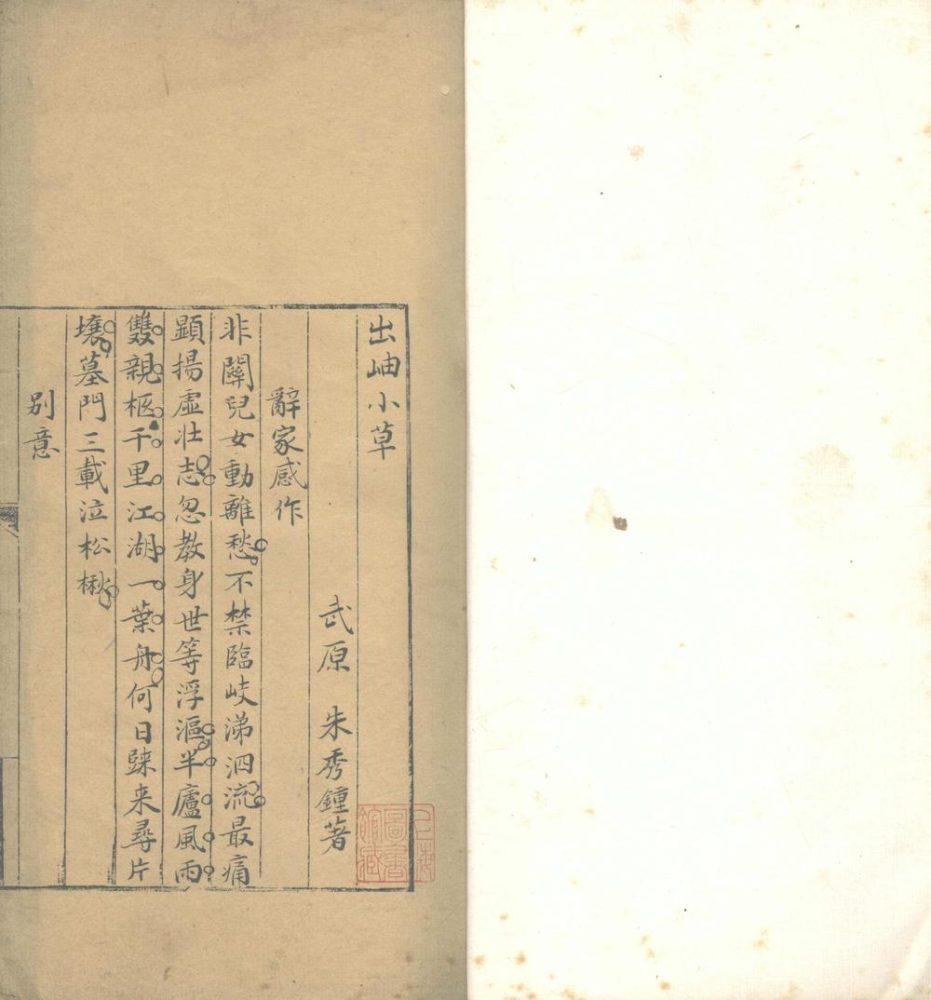 出岫小草
武原 朱秀鍾著
辭家感作
非關兒女動離愁不禁臨岐涕泗流最痛
顕揚虛壯志忽教身世等浮漚半廬風雨
雙親柩千里江湖一葉舟何日歸来尋片
壤墓門三載泣松楸
別意
圖書